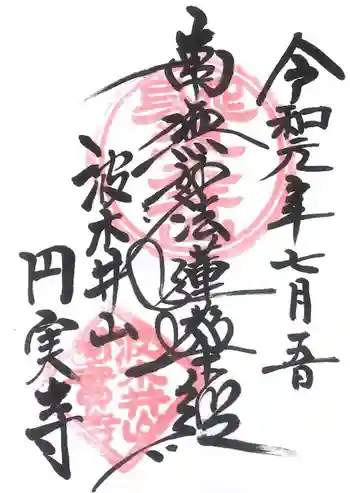 令和元年七月五日
南無妙法蓮華経
波木井山
円実寺